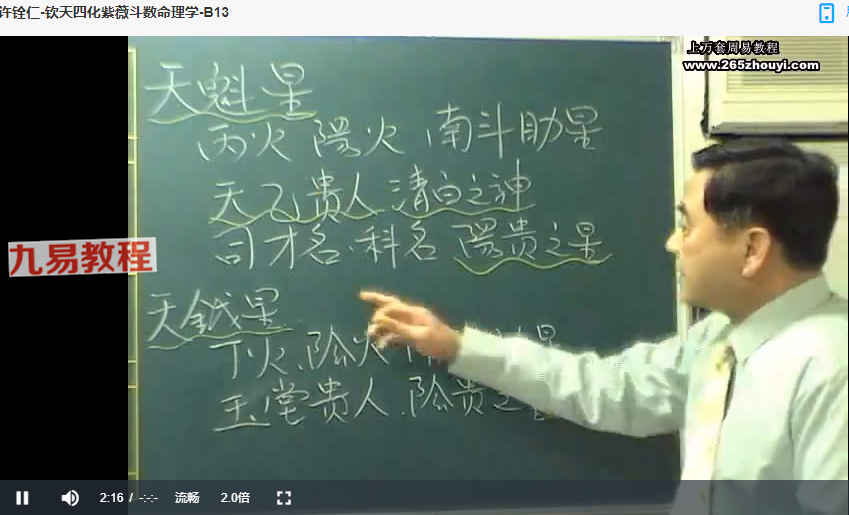 许铨仁-钦天四化紫薇斗数命理学-B13
上万套周易教程
www.265zhouyi.com
天魁星
丙火 陽火 南斗助星
天乙贵人 清白之神
司才名·科名 陽贵之星
九易教程
天鉞星
丁火、陰火
玉堂贵人、陰贵之
2:16 / -:-:- 流畅 2.0倍